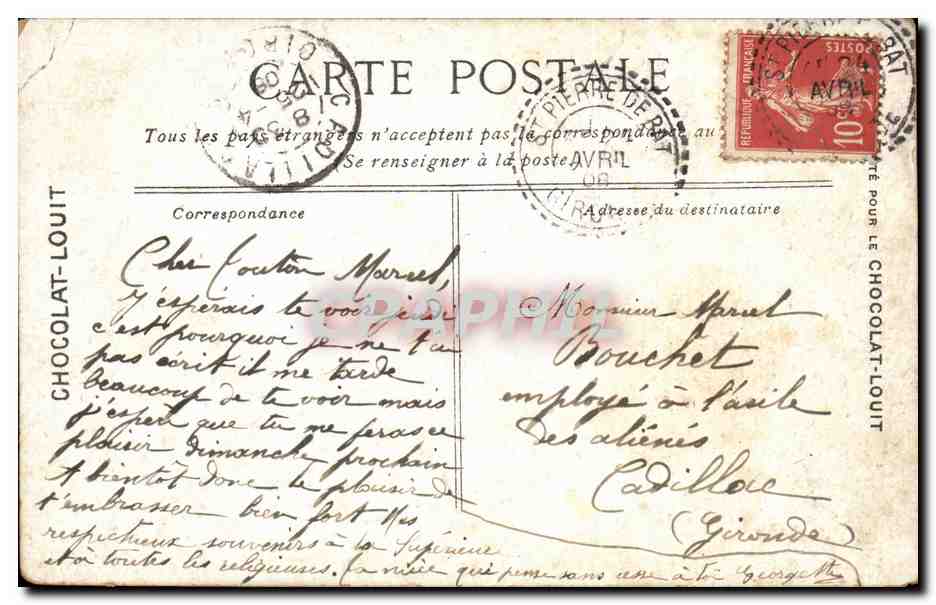 CARTE POSTALE
Tous les pays étrangers n'acceptent pas la correspondance au
(Se renseigner à la poste)
CHOCOLAT-LOUIT
Correspondance
Cher Tonton Marcel,
J'espérais te voir jeudi
c'est pourquoi je ne t'ai
pas écrit il me tarde
beaucoup de te voir mais
j'espère que tu me feras ce
plaisir dimanche prochain
A bientôt donc le plaisir de
t'embrasser bien fort Mes
respectueux souvenirs à la Supérieure
et à toutes les religieuses. Ta nièce qui pense sans cesse à toi Georgette
Adresse du destinataire
Monsieur Marcel
Bouchet
employé à l'asile
des aliénés
Cadillac
(Gironde)
POUR LE CHOCOLAT-LOUIT
ST PIERRE DE BAT
AVRIL
08
GIRONDE
CADILLAC
REPUBLIQUE FRANÇAISE
POSTES
10
AVRIL
CPAPHIL